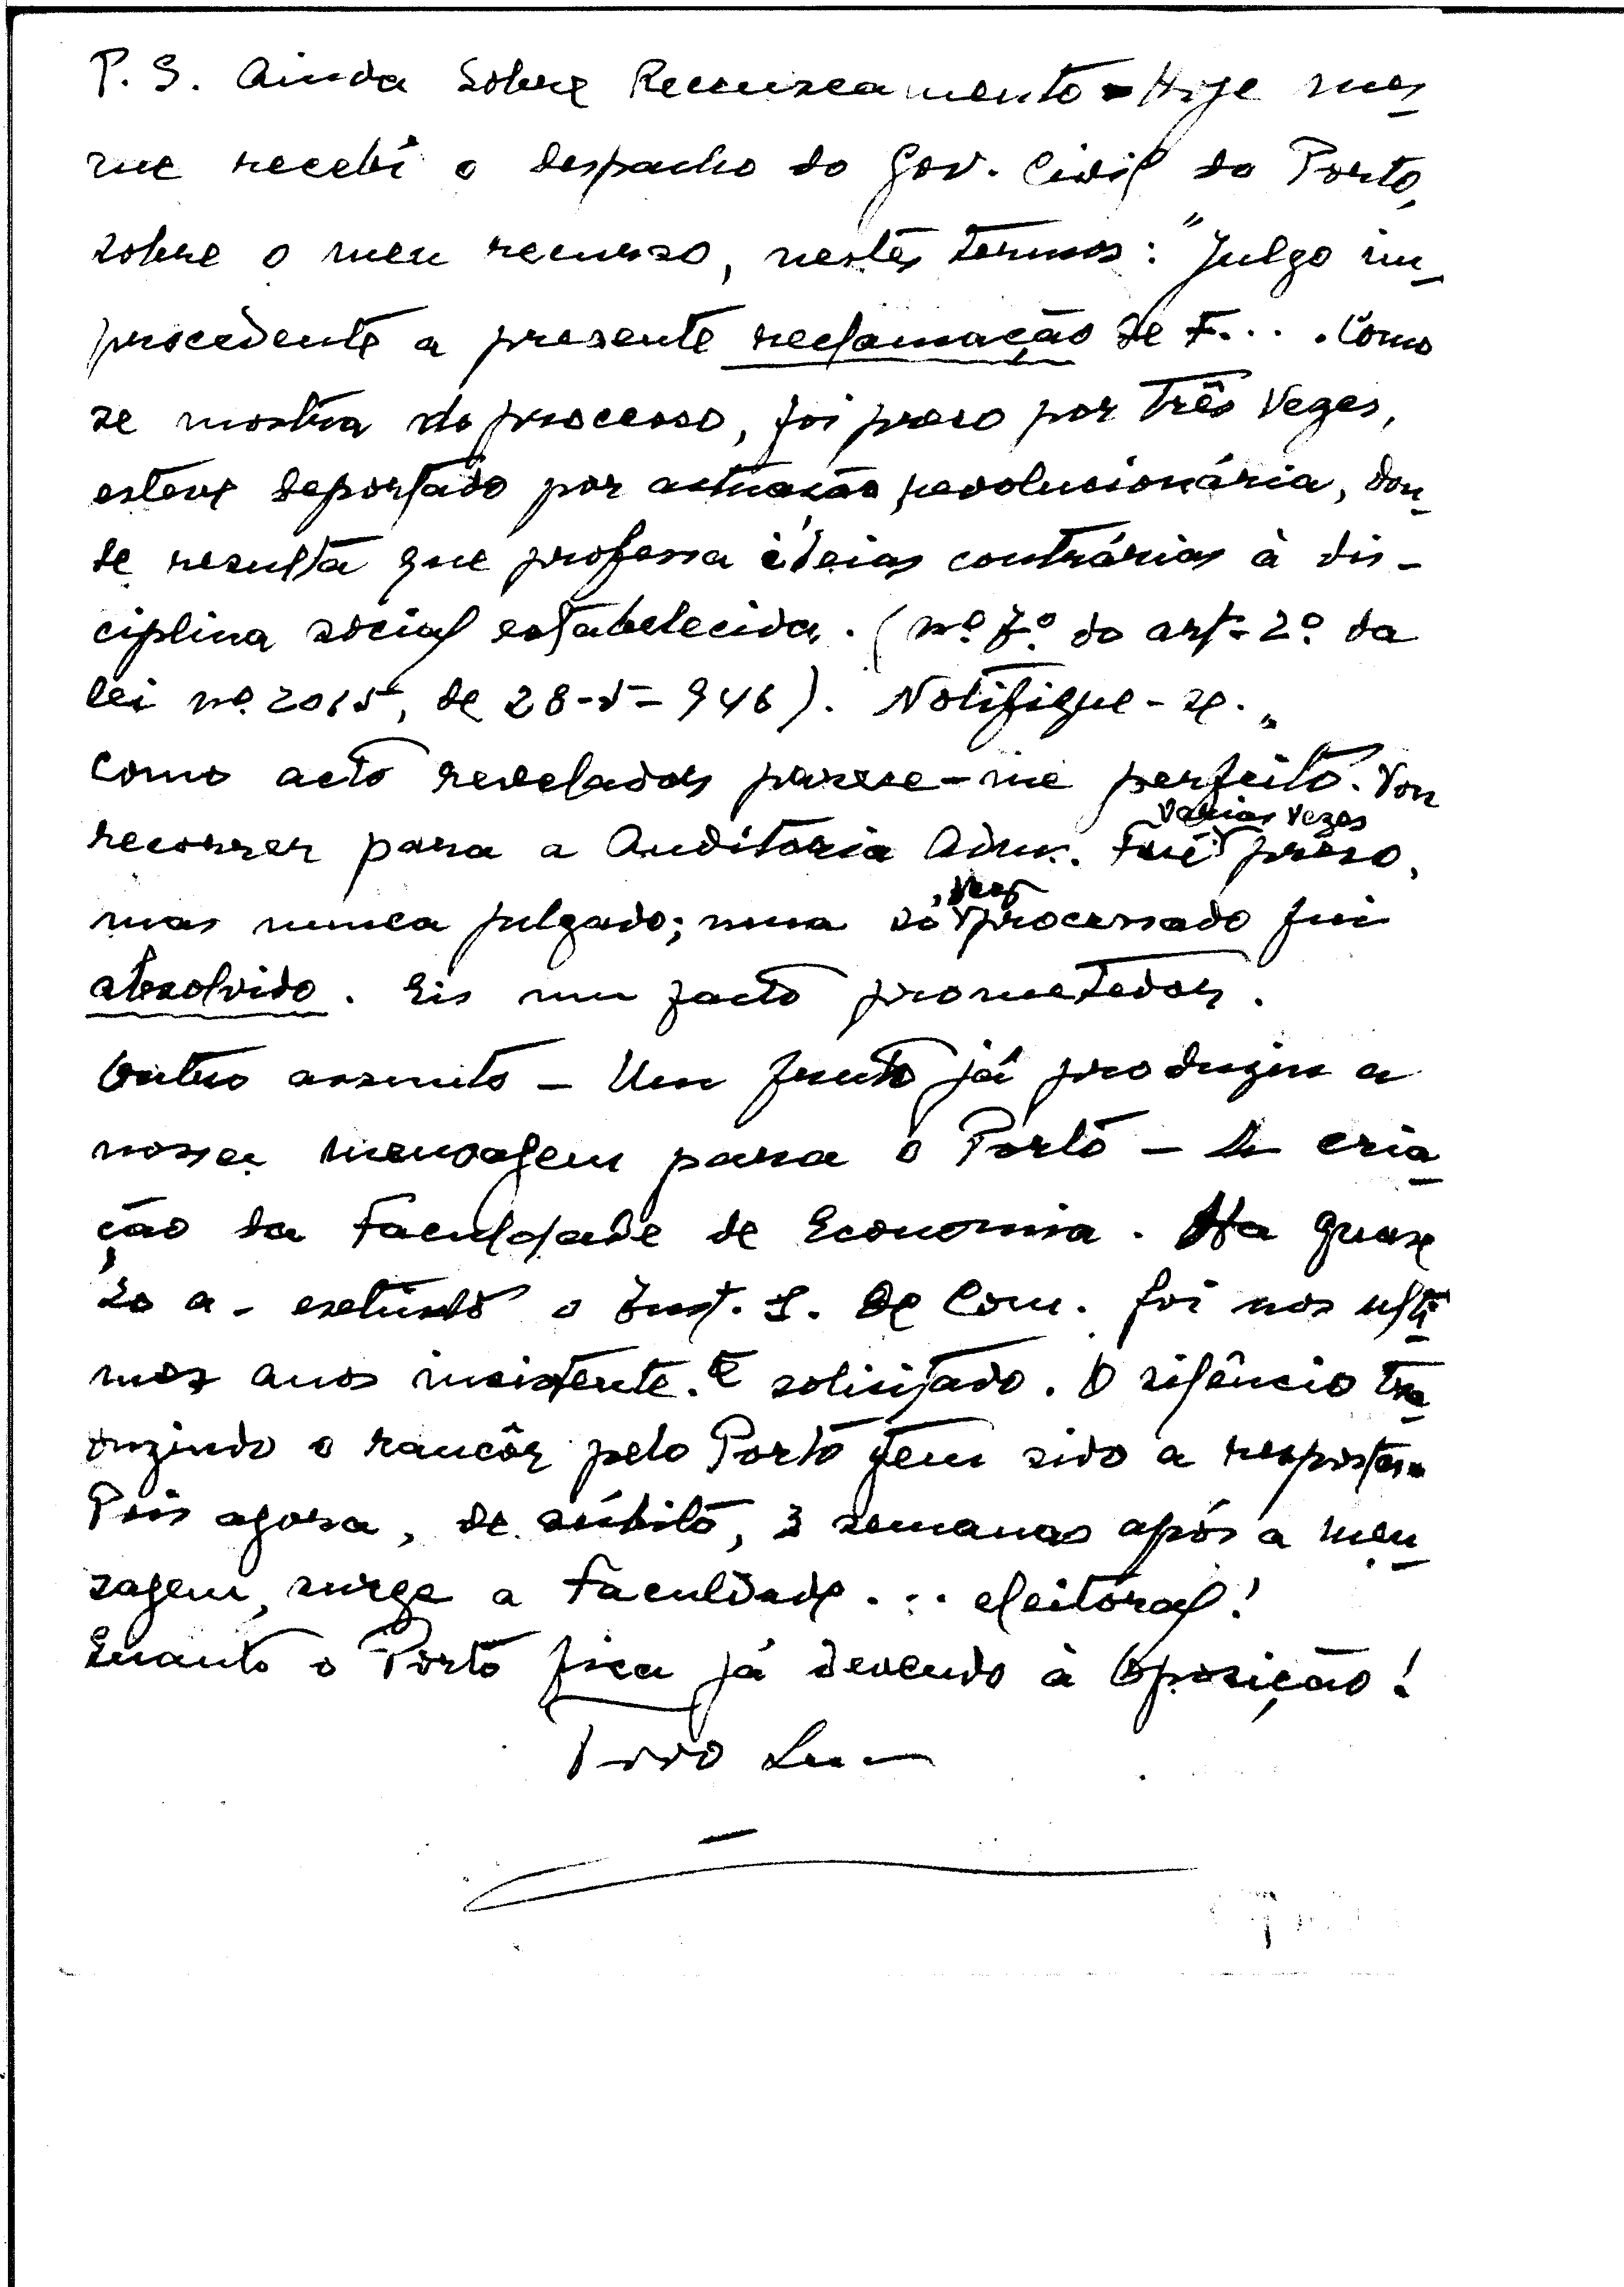 P. S. Ainda sobre Recenseamento - Hoje mes
mo recebi o despacho do Gov. Civil do Porto,
sobre o meu recurso, nestes termos: "Julgo im
procedente a presente reclamação de F... . Como
se mostra do processo, foi preso por três vezes,
esteve deportado por actuação revolucionária, don
de resulta que professa ideias contrárias à dis-
ciplina social estabelecida. (nº 7º do art- 2º da
lei nº 2015, de 28-5-946). Notifique-se."
Como acto revelador parece-me perfeito. Vou
várias vezes
recorrer para a Auditoria Adm. Fui preso,
vez
mas nunca julgado; numa só processado fui
absolvido. Eis um facto prometedor.
Outro assunto - Um fruto já produziu a
nossa mensagem para o Porto - a cria
ção da Faculdade de Economia. Há quase
20 a- extinto o Inst. S. de Com. foi nos últi
mos anos insistente.e solicitado. O silêncio tra
duzindo o rancôr pelo Porto tem sido a resposta.
Pois agora, de súbito, 3 semanas após a men
sagem, surge a Faculdade... eleitoral!
Quanto o Porto fica já devendo à Oposição!